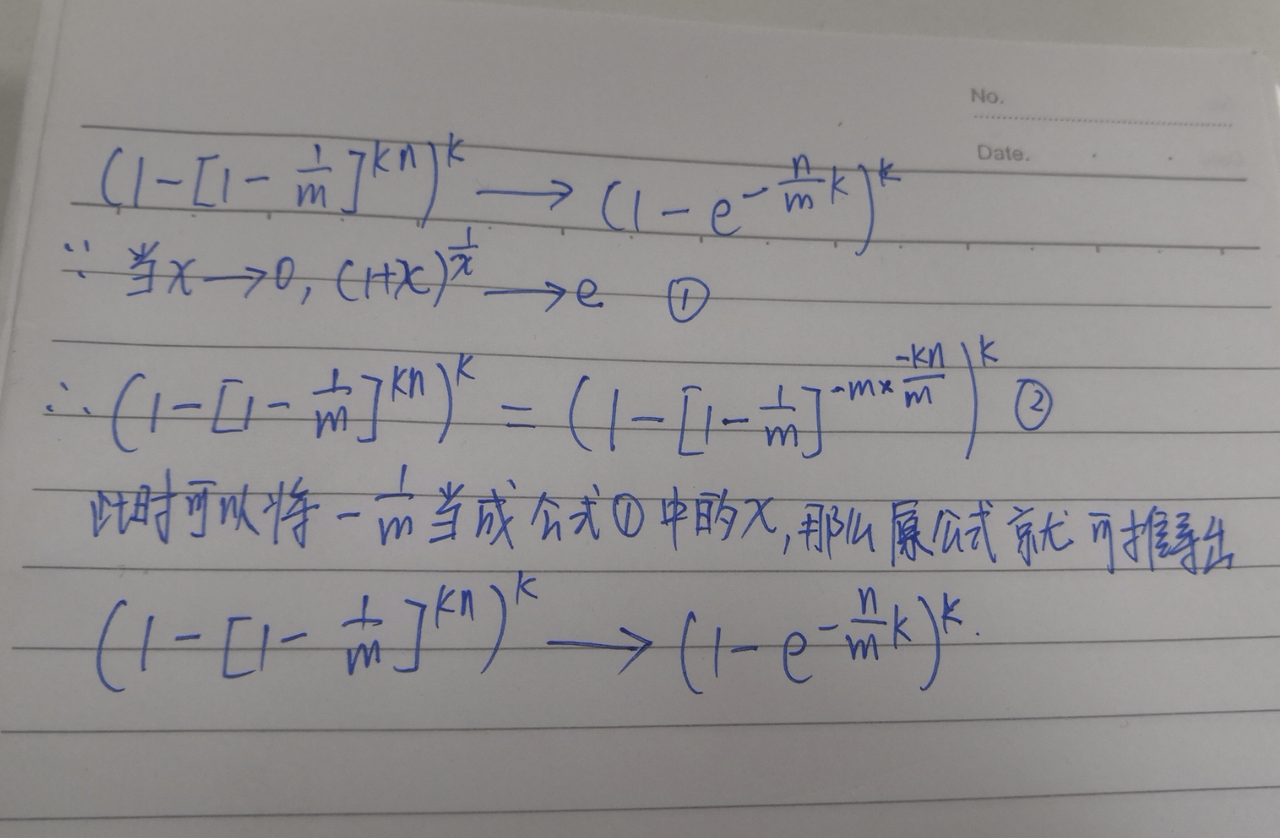 No.
Date.
(1-[1-\frac{1}{m}]^{kn})^{k} ⟶ (1-e^{-\frac{n}{m}k})^{k}
∵ 当x→0, (1+x)^{\frac{1}{x}} ⟶ e ①
∴ (1-[1-\frac{1}{m}]^{kn})^{k} = (1-[1-\frac{1}{m}]^{-m×\frac{-kn}{m}})^{k} ②
此时可以将 -\frac{1}{m} 当成公式①中的x,那么原公式就可推导出
(1-[1-\frac{1}{m}]^{kn})^{k} ⟶ (1-e^{-\frac{n}{m}k})^{k}.